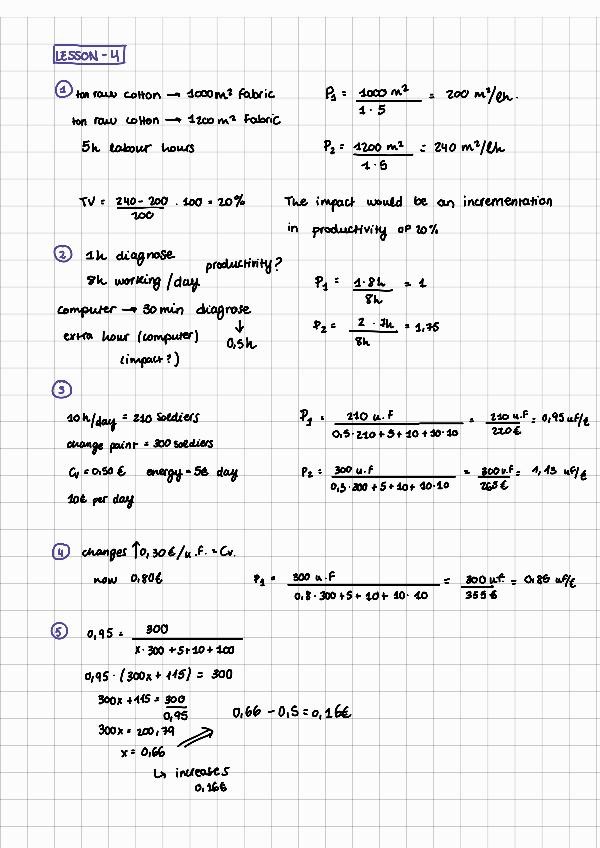 LESSON - 4
① ton raw cotton → 1000 m² fabric
P₁ = 1000 m² / 1 · 5 = 200 m²/lh.
ton raw cotton → 1200 m² fabric
5h labour hours
P₂ = 1200 m² / 1 · 5 = 240 m²/lh
TV = 240 - 200 / 200 · 100 = 20%
The impact would be an incrementation
in productivity of 20%
② 1h diagnose
8h working/day
productivity?
P₁ = 1 · 8h / 8h = 1
computer → 30 min diagnose
↓
0,5h
extra hour (computer)
(impact?)
P₂ = 2 · 7h / 8h = 1,75
③
10h/day = 210 soldiers
P₁ = 210 u.f / 0,5 · 210 + 5 + 10 + 10 · 10 = 210 u.f / 220€ = 0,95 uf/€
change paint = 300 soldiers
Cv = 0,50€ energy = 5€ day
P₂ = 300 u.f / 0,5 · 300 + 5 + 10 + 10 · 10 = 300 u.f / 265€ = 1,13 uf/€
10€ per day
④ changes ↑ 0,30€/u.f. = Cv.
now 0,80€
P₁ = 300 u.f / 0,8 · 300 + 5 + 10 + 10 · 10 = 300 uf. / 355€ = 0,85 uf/€
⑤ 0,95 = 300 / x · 300 + 5 + 10 + 100
0,95 · (300x + 115) = 300
300x + 115 = 300 / 0,95
0,66 - 0,5 = 0,16€
300x = 200,79
x = 0,66
↳ increases
0,16€